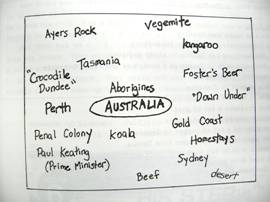 Ayers Rock
Vegemite
kangaroo
Tasmania
"Crocodile
Dundee"
Foster's Beer
Aborigines
"Down Under"
Perth
AUSTRALIA
Gold Coast
Penal Colony
Koala
Homestays
Paul Keating
(Prime Minister)
Sydney
Beef
desert